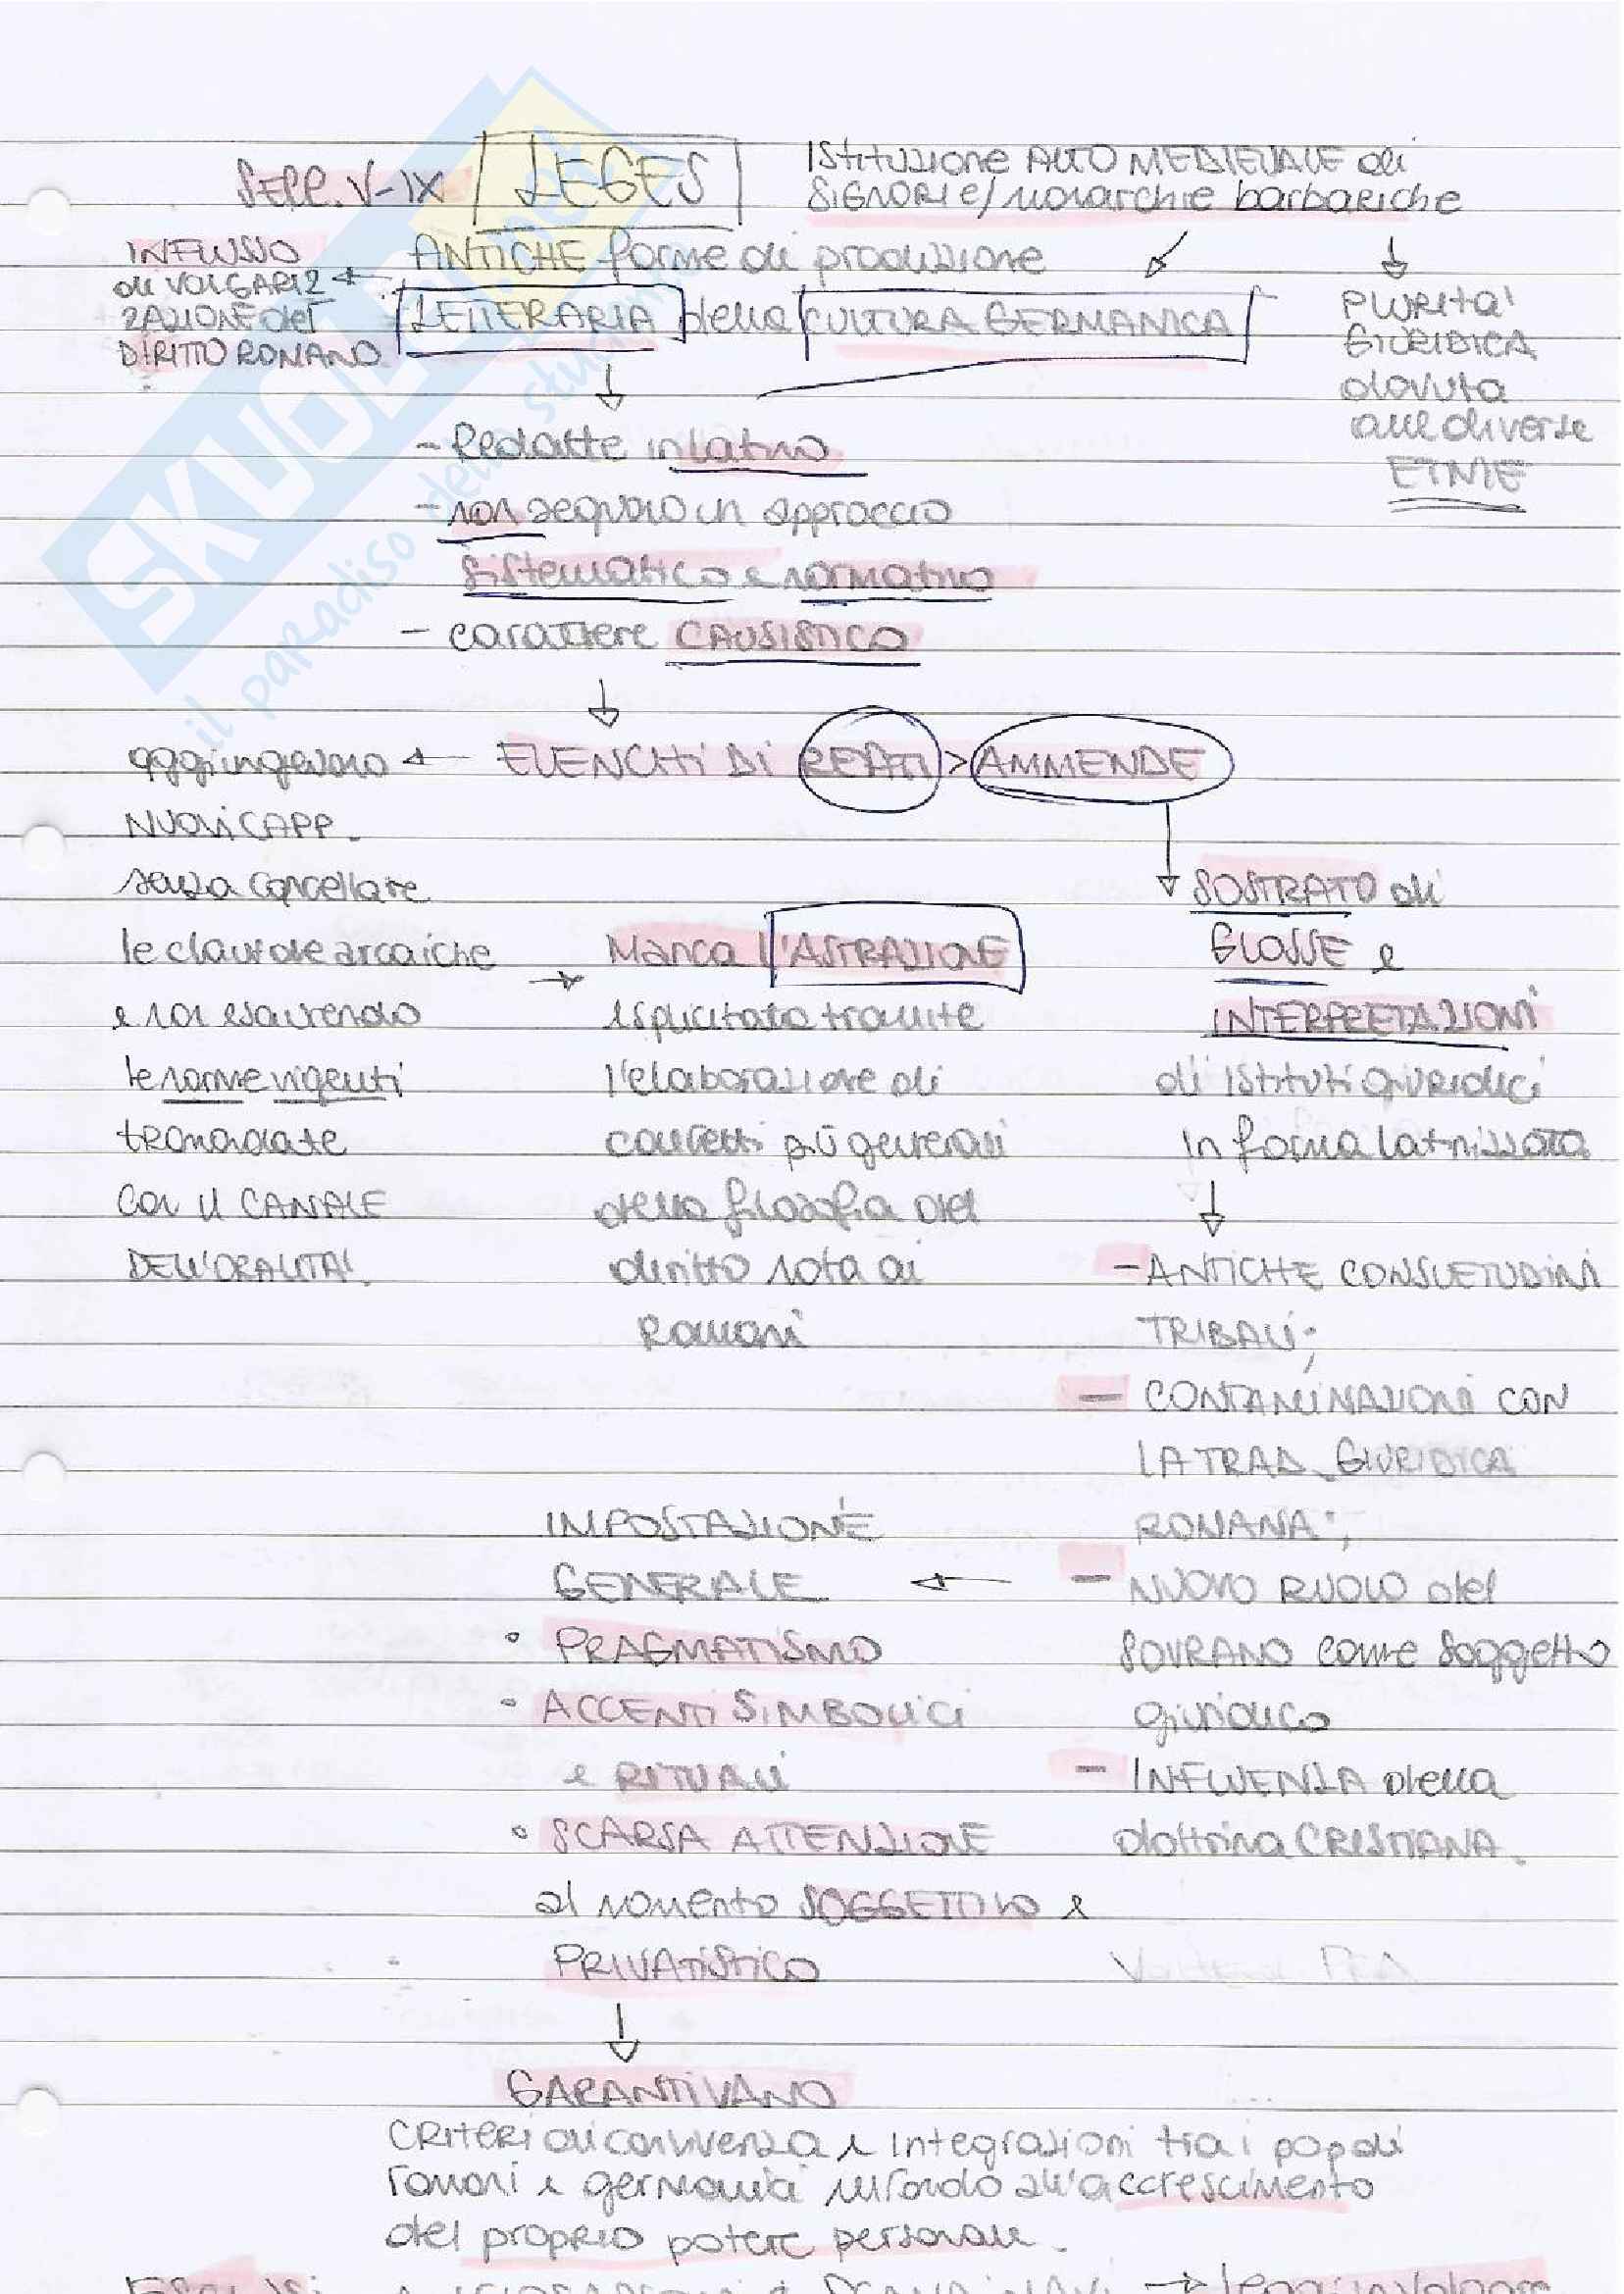 SECC. V-IX LEGES
ISTITUZIONE ALTO MEDIEVALE di
SIGNORIE/monarchie barbariche
ANTICHE forme di produzione
LETTERARIA della CULTURA GERMANICA
INFLUSSO
di VOLGARIZ
ZAZIONE del
DIRITTO ROMANO
PLURITA'
GIURIDICA
dovuta
alle diverse
ETNIE
- Redatte in latino
- non seguono un approccio
sistematico e normativo
- carattere CAUSISTICO
ELENCHI DI REATI > AMMENDE
aggiungevano
NUOVI CAPP.
senza cancellare
le clausole arcaiche
e non esaurendo
le norme vigenti
tramandate
con il CANALE
DELL'ORALITA'.
Manca L'ASTRAZIONE
esplicitata tramite
l'elaborazione di
concetti più generali
della filosofia del
diritto nota ai
Romani
SOSTRATO di
GLOSSE e
INTERPRETAZIONI
di istituti giuridici
in forma latinizzata
- ANTICHE CONSUETUDINI
TRIBALI;
- CONTAMINAZIONI CON
LA TRAD. GIURIDICA
ROMANA;
- NUOVO RUOLO del
SOVRANO come soggetto
giuridico
- INFLUENZA della
dottrina CRISTIANA.
IMPOSTAZIONE
GENERALE
• PRAGMATISMO
• ACCENTI SIMBOLICI
e RITUALI
• SCARSA ATTENZIONE
al momento SOGGETTIVO e
PRIVATISTICO
GARANTIVANO
CRITERI di convivenza e integrazioni tra i popoli
romani e germanici mirando all'accrescimento
del proprio potere personale.
SKUOLA.net
il paradiso dello studente